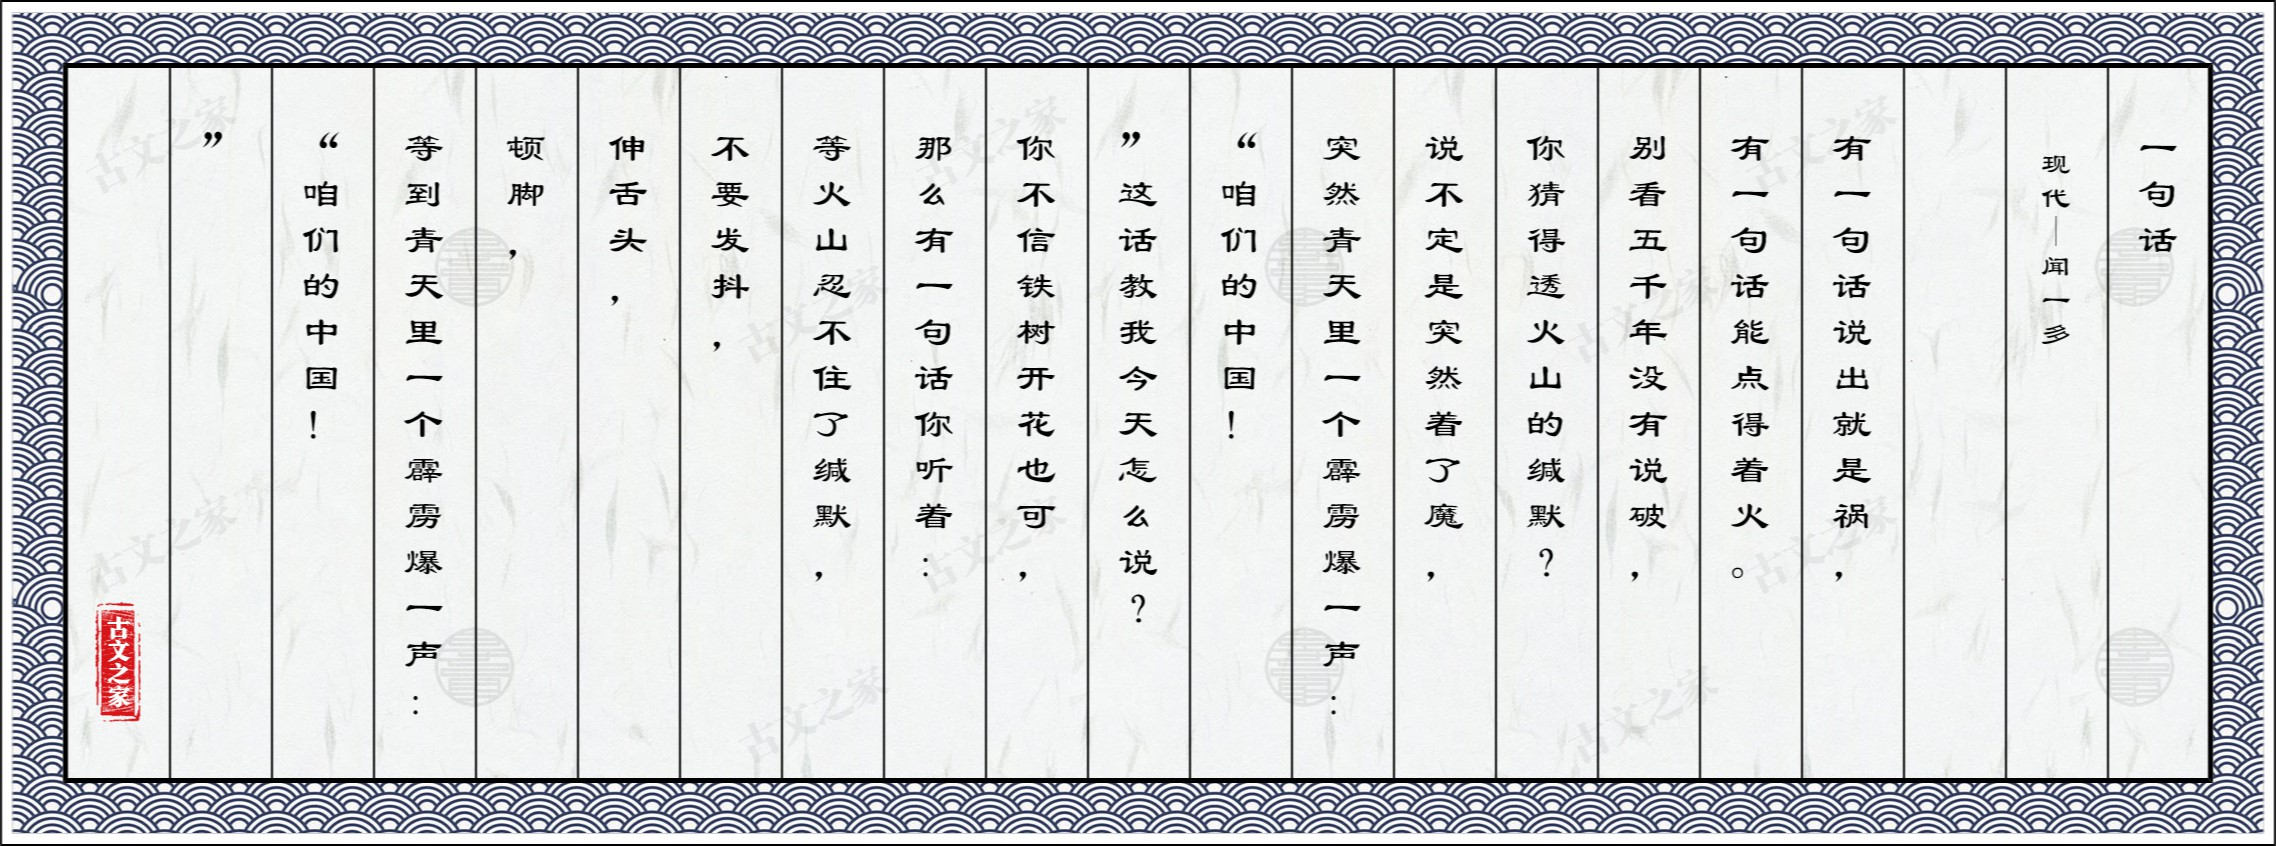 一句话
现代—闻一多
有一句话说出就是祸，
有一句话能点得着火。
别看五千年没有说破，
你猜得透火山的缄默？
说不定是突然着了魔，
突然青天里一个霹雳爆一声：
“咱们的中国！
”这话教我今天怎么说？
你不信铁树开花也可，
那么有一句话你听着：
等火山忍不住了缄默，
不要发抖，
伸舌头，
顿脚，
等到青天里一个霹雳爆一声：
“咱们的中国！
”
古文之家